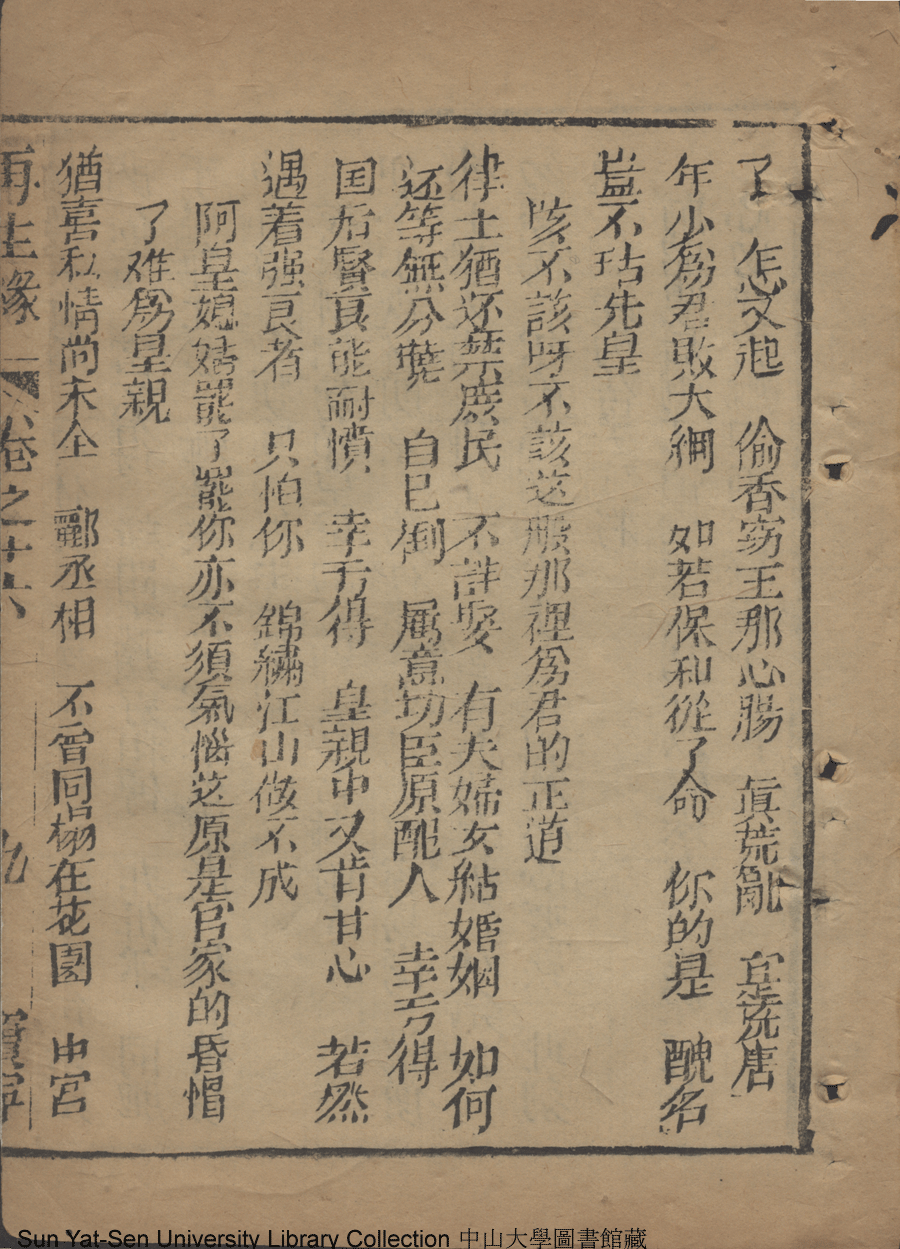 了 怎又起 偷香窃玉那心腸 真荒亂 宜荒唐
年少爲君敗大綱 如若保和從了命 你的是 醜名
豈不玷先皇
咳不該呀不該这般那裡爲君的正道
律土猶还禁庶民 不許娶 有夫婦女結婚姻 如何
还等無分曉 自已倒 属意功臣原配人 幸亏得
国后賢良能耐憤 幸亏得 皇親中又肯甘心 若然
遇着强良者 只怕你 錦繡江山做不成
阿皇媳姑罷了罷你亦不須氣惱这原是官家的昏帽
了难爲皇親
猶喜私情尚未仝 酈丞相 不曾同榻在花園 中宮
再生緣 卷之十六 九
Sun Yat-Sen University Library Collection 中山大學圖書館藏